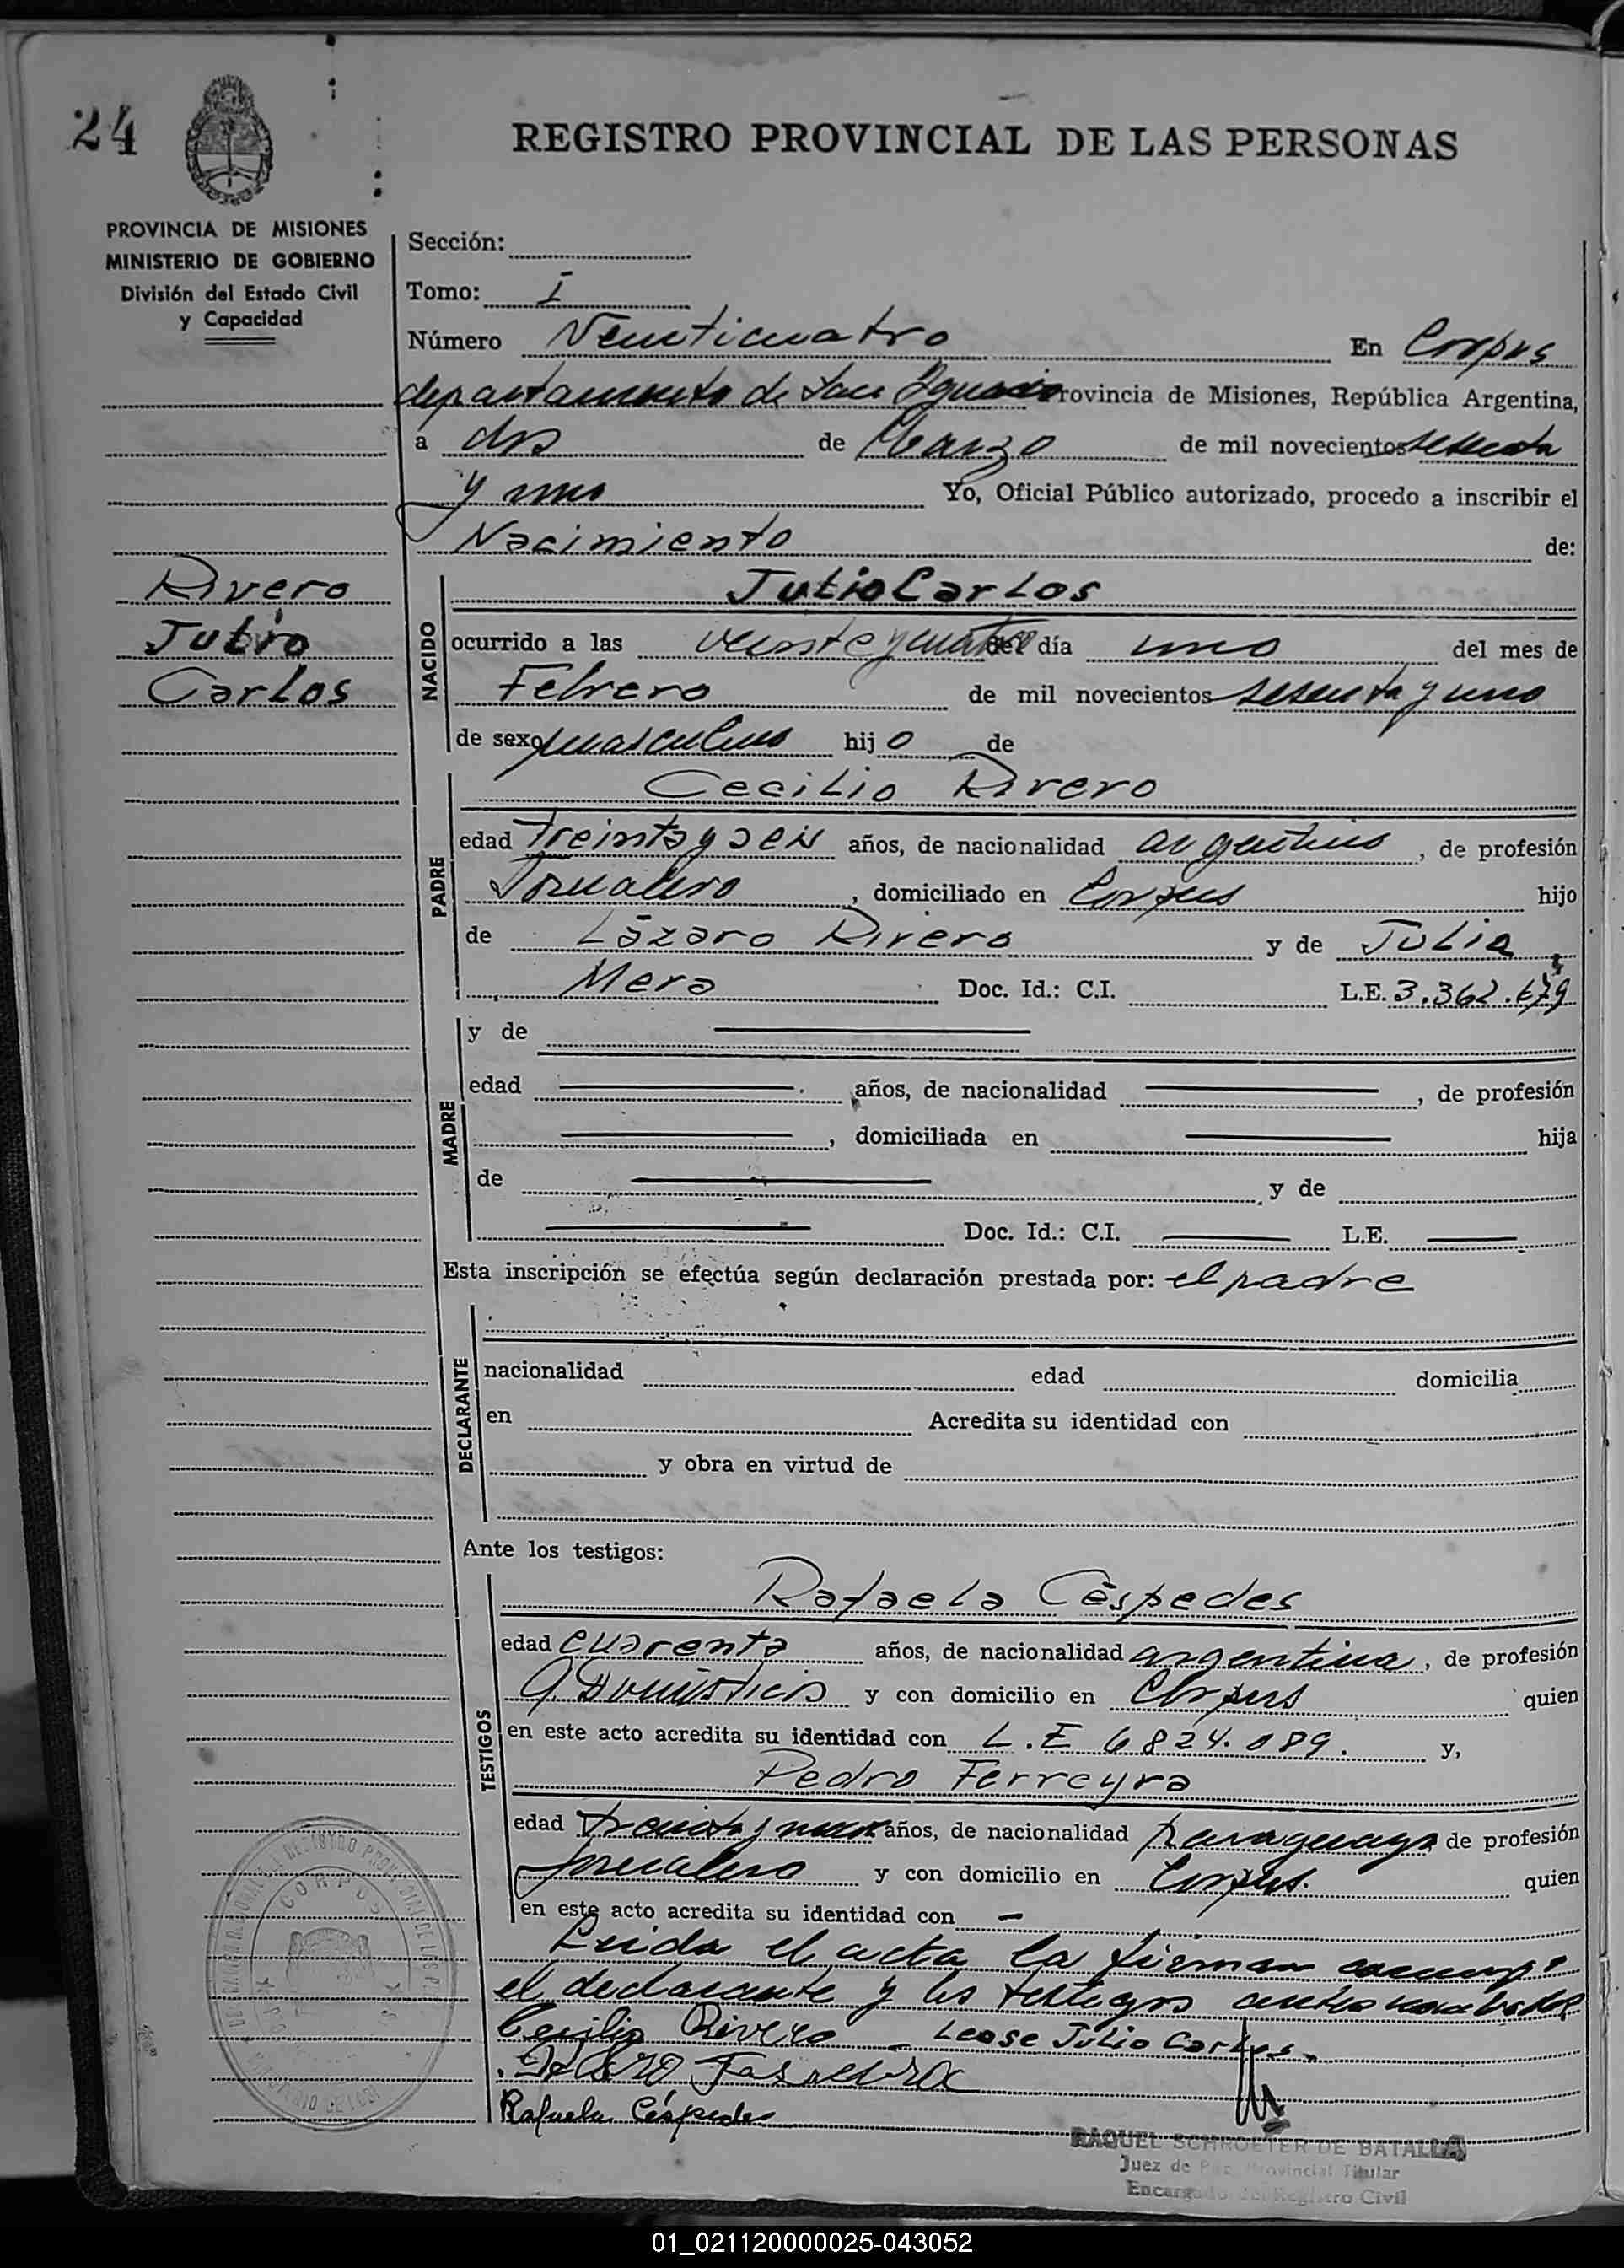 24
REGISTRO PROVINCIAL DE LAS PERSONAS
PROVINCIA DE MISIONES
MINISTERIO DE GOBIERNO
División del Estado Civil
y Capacidad
Sección:
Tomo: I
Número Veinticuatro En Corpus
departamento de San Ignacio Provincia de Misiones, República Argentina,
a dos de Marzo de mil novecientos sesenta
y uno Yo, Oficial Público autorizado, procedo a inscribir el
Nacimiento de:
Rivero
Julio
Carlos
NACIDO
Julio Carlos
ocurrido a las veinte y cuatro del día uno del mes de
Febrero de mil novecientos sesenta y uno
de sexo masculino hijo de
PADRE
Cecilio Rivero
edad treinta y seis años, de nacionalidad argentino, de profesión
Jornalero, domiciliado en Corpus hijo
de Lázaro Rivero y de Julia
Mera Doc. Id.: C.I. L.E. 3.362.
MADRE
y de
edad años, de nacionalidad , de profesión
, domiciliada en hija
de y de
Doc. Id.: C.I. L.E.
Esta inscripción se efectúa según declaración prestada por: el padre
DECLARANTE
nacionalidad edad domicilia
en Acredita su identidad con
y obra en virtud de
Ante los testigos:
TESTIGOS
Rafaela Céspedes
edad cuarenta años, de nacionalidad argentina, de profesión
q. Domésticos y con domicilio en Corpus quien
en este acto acredita su identidad con L.E 6824.089. y,
Pedro Ferreyra
edad treinta y años, de nacionalidad paraguayo de profesión
jornalero y con domicilio en Corpus. quien
en este acto acredita su identidad con —
Leida el acta la firman conmigo
el declarante y los testigos antes nombrados
Cecilio Rivero Lease Julio Carlos.
Rafaela Céspedes
CORPUS
RAQUEL SCHROETER DE BATALLA
Juez de Paz Provincial Titular
Encargado del Registro Civil
01_021120000025-043052